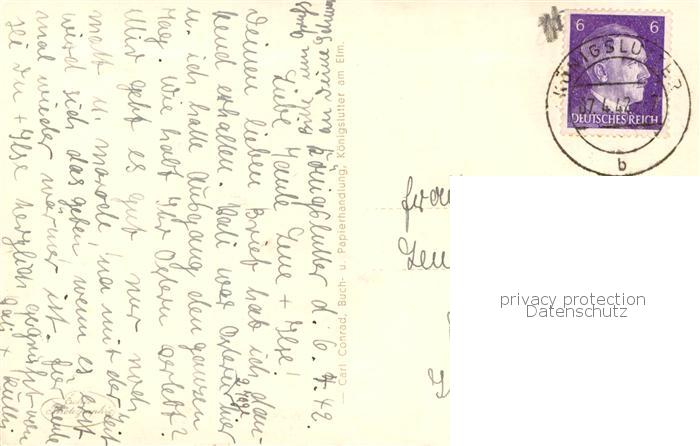 Königslutter d. 6. 4. 42.
Liebe Tante Lene + Ilse!
Deinen lieben Brief hab ich dan-
kend erhalten. Vati war Ostern hier
2 Tage
u. ich hatte Ausgang den ganzen
Tag. Wie habt Ihr Ostern verlebt?
Mir geht es gut nur noch
matt u. marode! na mit der Zeit
wird sich das geben! wenn es erst
mal wieder wärmer ist. Für heute
sei Du + Ilse herzlich gegrüßt von
— Carl Conrad, Buch- u. Papierhandlung, Königslutter am Elm.
6 6
DEUTSCHES REICH
KÖNIGSLUTTER
7.4.42
b
privacy protection
Datenschutz